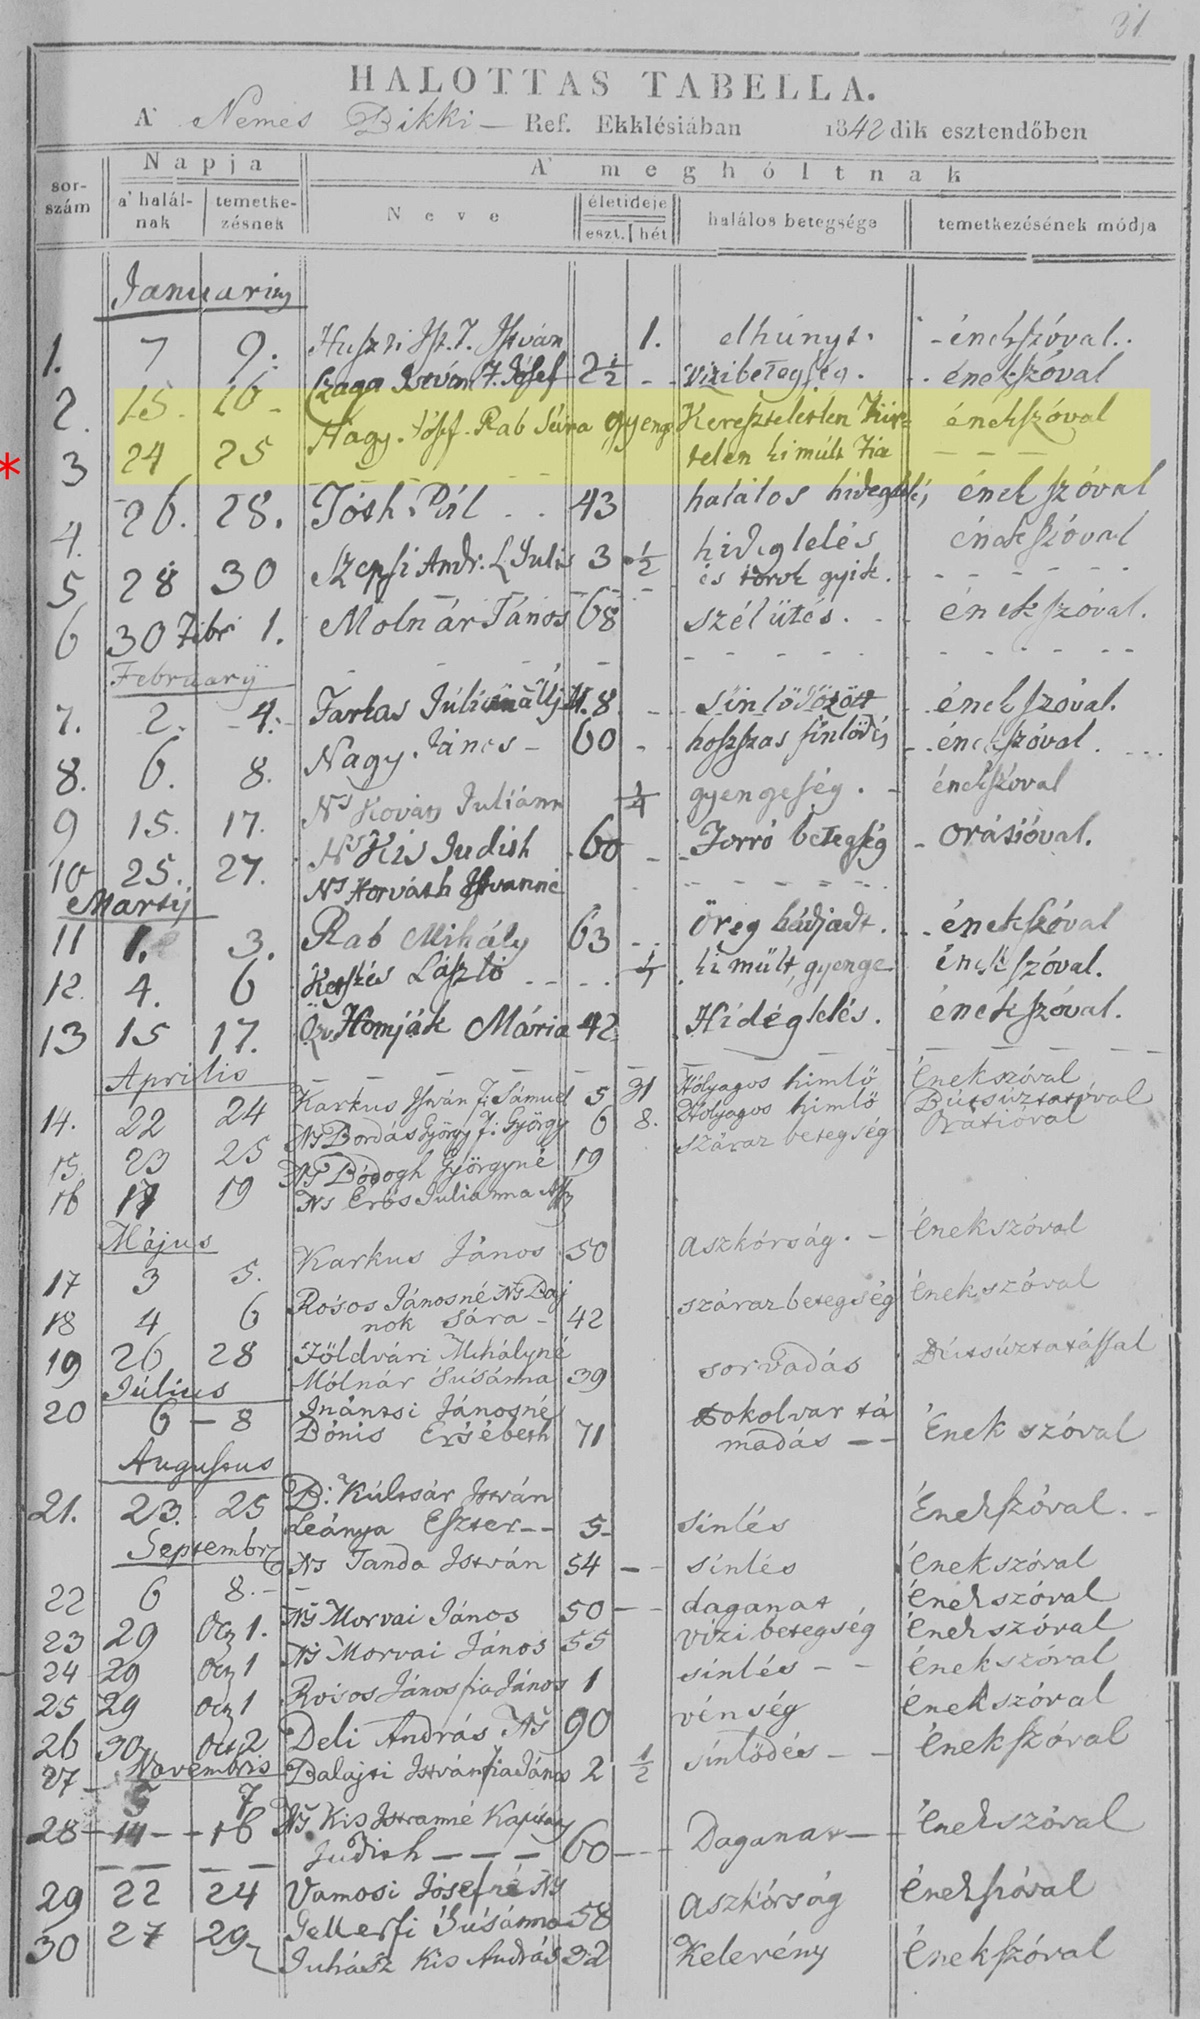 31
HALOTTAS TABELLA.
A' Nemes Bikki — Ref. Ekklésiában 1842dik esztendőben
sor-szám Napja A' meghóltnak
a' halál-nak temetke-zésnek Neve életideje halálos betegsége temetkezésének módja
eszt. hét
Januarius
1. 7 9. István 1. elhúnyt. - énekszóval.
2. 15. 16 - Czaga István F. Jósef 2 1/2 - - vizibetegség. - énekszóval
* 3 24 25 Nagy Jósef Rab Sára gyenge Kereszteletlen énekszóval
telen ki múlt fia - - -
4. 26. 28. Tóth Pál 43 halálos hideglelés ének szóval
5 28 30 Szepsi Andr. L. Julis 3 1/2 hideglelés énekszóval
és torok gyik.
6 30 Febr 1. Molnár János 68 szél ütés. énekszóval.
Februarÿ
7. 2. 4. Farkas 48 sinlődözött ének szóval.
8. 6. 8. Nagy János - 60 - hoszszas sinlődés énekszóval.
9 15. 17. Ns Kován Juliánn 1/4 gyengeség. - énekszóval
10 25. 27. Ns Kis Judith 60 - Forró betegség - orátióval.
Ns Horváth Istvánné
Martÿ
11 1. 3. Rab Mihály 63 öreg énekszóval
12. 4. 6 László ki múlt, gyenge énekszóval.
13 15 17. Öz. Homják Mária 42 Hideglelés. énekszóval.
Aprilis
14. 22 24 Karkus István f. Sámuel 5 31 Hólyagos himlő Énekszóval
15. 23 25 Ns Bordás György f. György 6 8. Hólyagos himlő Bútsúztatóval
16 17 19 Ns Bódogh Györgyné 19 száraz betegség Orátióval
Ns Erős Julianna
Május
17 3 5. Karkus János 50 Aszkórság. - Énekszóval
18 4 6 Rósos Jánosné Ns Baj
nok Sára - 42 száraz betegség Énekszóval
19 26 28 Földvári Mihályné
Mólnár Susánna 39 sorvadás Bútsúztatással
Július
20 6 - 8 Inántsi Jánosné
Bónis Ersébeth 71 tokolvar tá
madás - - Ének szóval
Augustus
21. 23. 25 B: Kúltsár István
Leánya Eszter - - 5 - sinlés Énekszóval. -
Septembr
22 6 8. - Ns Tanda István 54 - - sinlés Énekszóval
23 29 Oct 1. Ns Morvai János 50 - - daganat Énekszóval
24 29 Oct 1 Ns Morvai János 55 vizi betegség Énekszóval
25 29 Oct 1 Rósos János fia János 1 sinlés - - Énekszóval
26 30 Oct 2 Deli András Ns 90 vénség Énekszóval
Novembris
27 5 7 Balajti István fia János 2 1/2 sinlődés - - Énekszóval
28 - 14 - - 16 Ns Kis Istvánné
Judith - - - - 60 - - - Daganat - - Énekszóval
29 22 24 Vamosi Jósefné Ns
Gellerfi Susánna 58 Aszkórság Énekszóval
30 27 29 Juhász Kis András 32 Kelevény Énekszóval